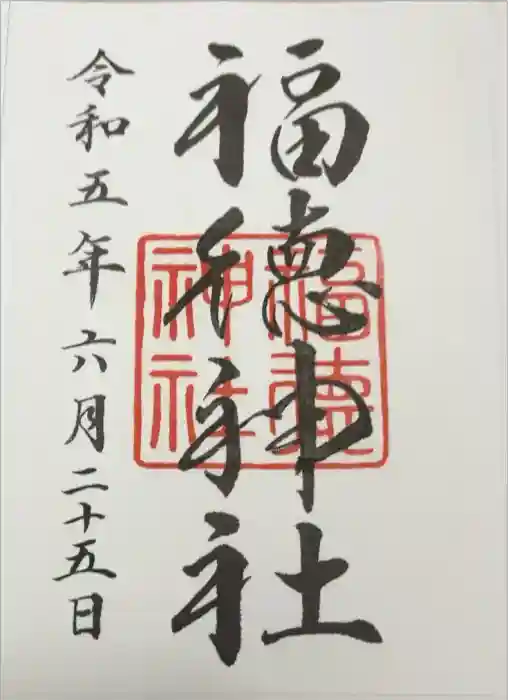 福徳神社
令和五年六月二十五日
福徳
神社